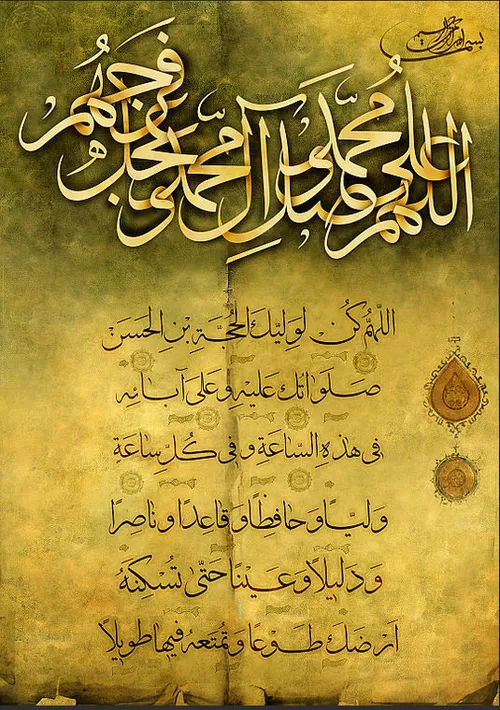 بسم الله الرحمن الرحيم
اللهم صل على محمد وآل محمد وعجل فرجهم
اللهُمَّ كُنْ لِوَليِّكَ الحُجَّةِ بْنِ الحَسَنْ
صَلَواتكَ عَليْهِ وَعَلىٰ آبائِه
في هذِهِ السَّاعَةِ وَفي كُلِّ ساعَةِ
وَليّاً وَحافِظاً وَقاعِداً وَناصِراً
وَدَليلاً وَعَيْناً حَتّىٰ تُسْكِنَهُ
اَرْضَكَ طَوْعاً وَتُمتعَهُ فيها طَويلاً